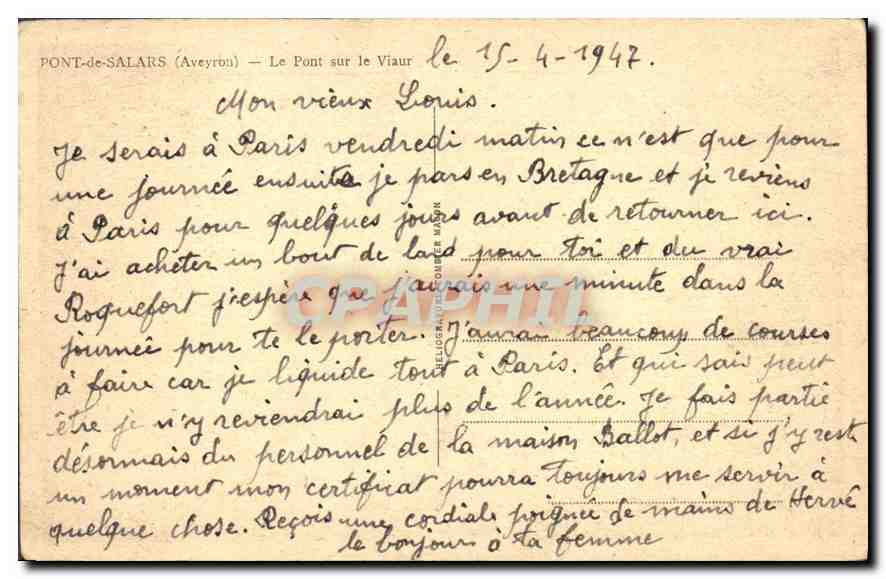 PONT-de-SALARS (Aveyron) — Le Pont sur le Viaur le 15-4-1947.
Mon vieux Louis.
Je serais à Paris vendredi matin ce n'est que pour
une journée ensuite je pars en Bretagne et je reviens
à Paris pour quelques jours avant de retourner ici.
J'ai acheter un bout de lard pour toi et du vrai
Roquefort j'espère que j'aurais une minute dans la
journée pour te le porter. J'aurai beaucoup de courses
à faire car je liquide tout à Paris. Et qui sai peut
être je n'y reviendrai plus de l'année. Je fais partie
désormais du personnel de la maison Ballot, et si j'y rest
un moment mon certificat pourra toujours me servir à
quelque chose. Reçois une cordiale poignée de mains de Hervé
le bonjour à ta femme
HELIOGRAVURE COMBIER MACON
CPAPHIL